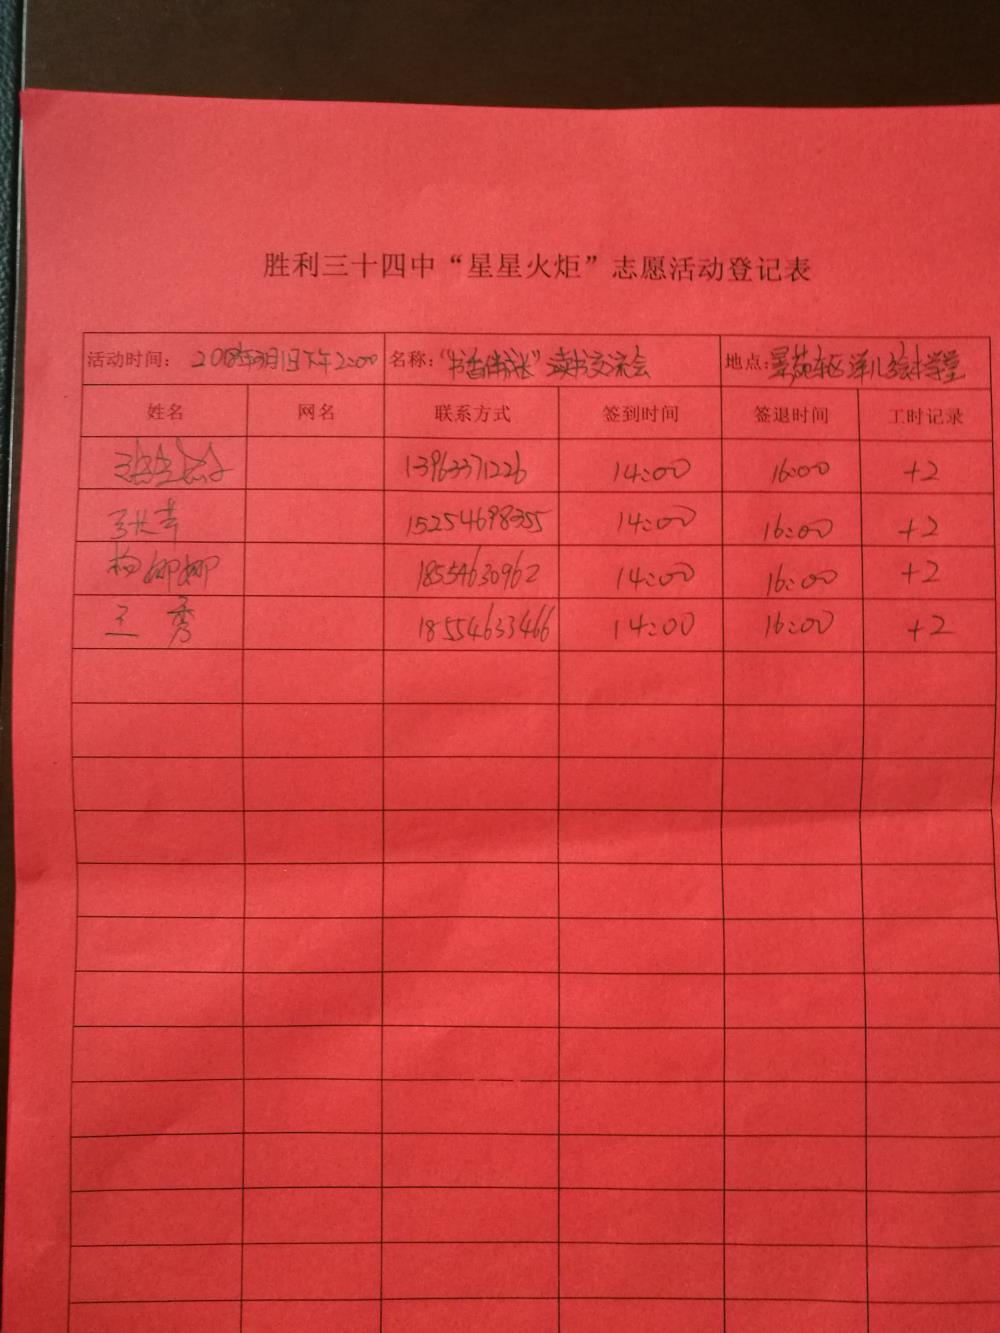 胜利三十四中“星星火炬”志愿活动登记表
活动时间： 2018年3月1日下午2:00 名称：“书香伴成长”读书交流会 地点：景苑东区
姓名 网名 联系方式 签到时间 签退时间 工时记录
13963371226 14:00 16:00 +2
张芳 15254698355 14:00 16:00 +2
杨娜娜 18554630962 14:00 16:00 +2
王秀 18554633466 14:00 16:00 +2